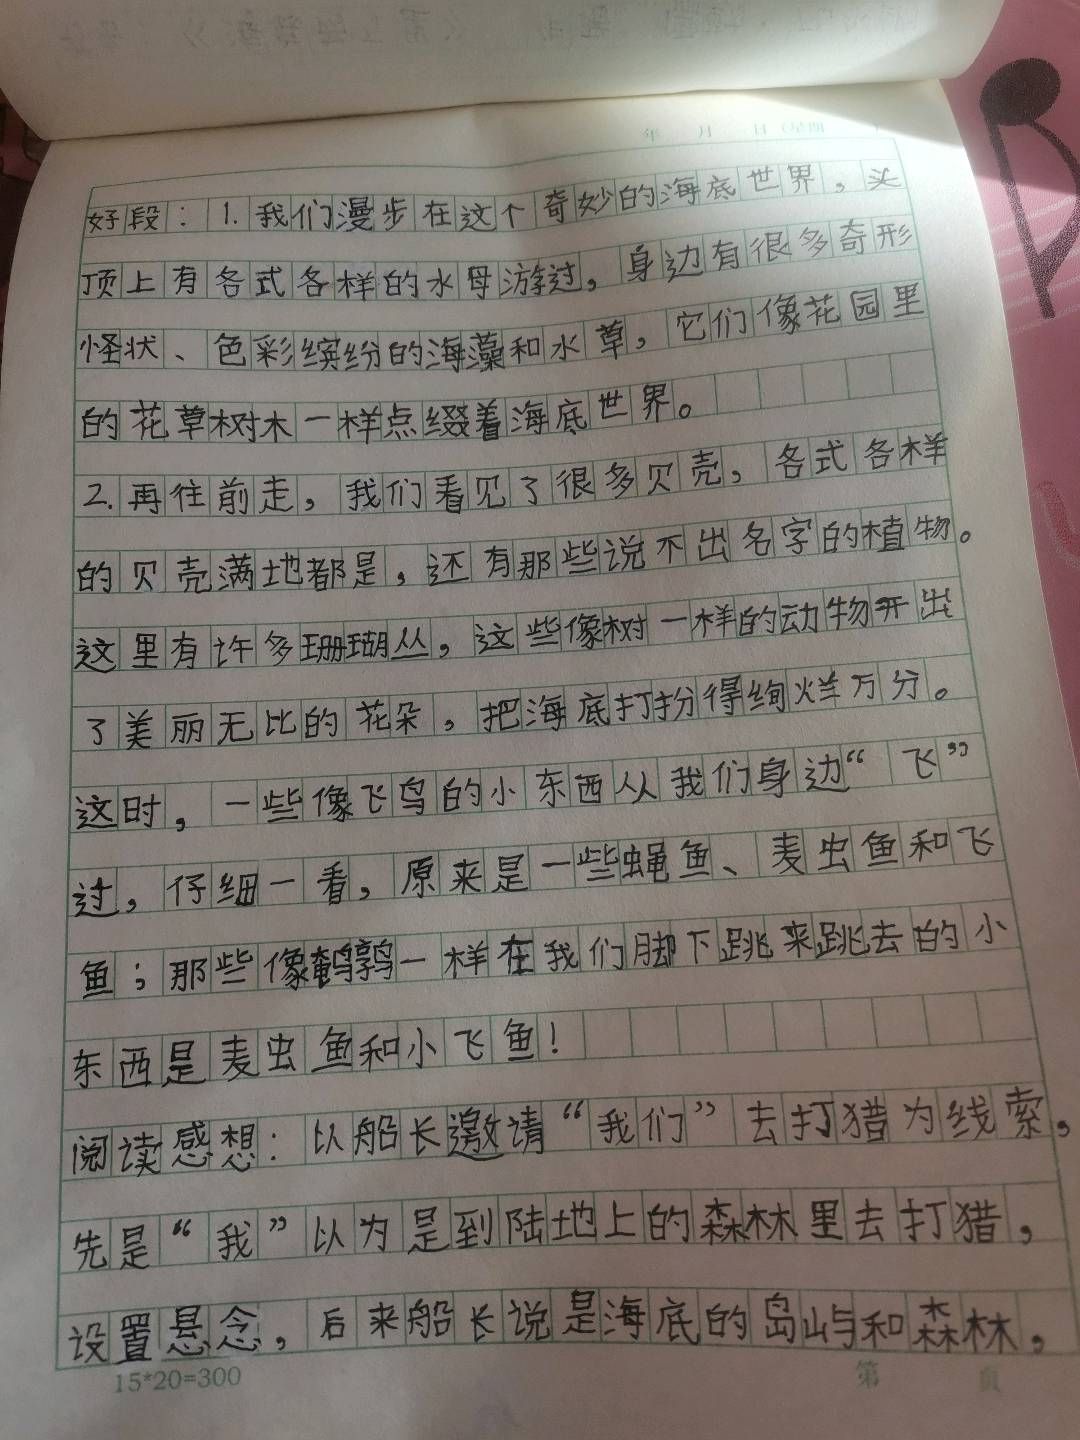 年 月 日(星期
好段：1.我们漫步在这个奇妙的海底世界，头
顶上有各式各样的水母游过，身边有很多奇形
怪状、色彩缤纷的海藻和水草，它们像花园里
的花草树木一样点缀着海底世界。
2.再往前走，我们看见了很多贝壳，各式各样
的贝壳满地都是，还有那些说不出名字的植物。
这里有许多珊瑚丛，这些像树一样的动物开出
了美丽无比的花朵，把海底打扮得绚烂万分。
这时，一些像飞鸟的小东西从我们身边“飞”
过，仔细一看，原来是一些蝇鱼、麦虫鱼和飞
鱼；那些像鹌鹑一样在我们脚下跳来跳去的小
东西是麦虫鱼和小飞鱼！
阅读感想：以船长邀请“我们”去打猎为线索，
先是“我”以为是到陆地上的森林里去打猎，
设置悬念，后来船长说是海底的岛屿和森林，
15*20=300 第 页